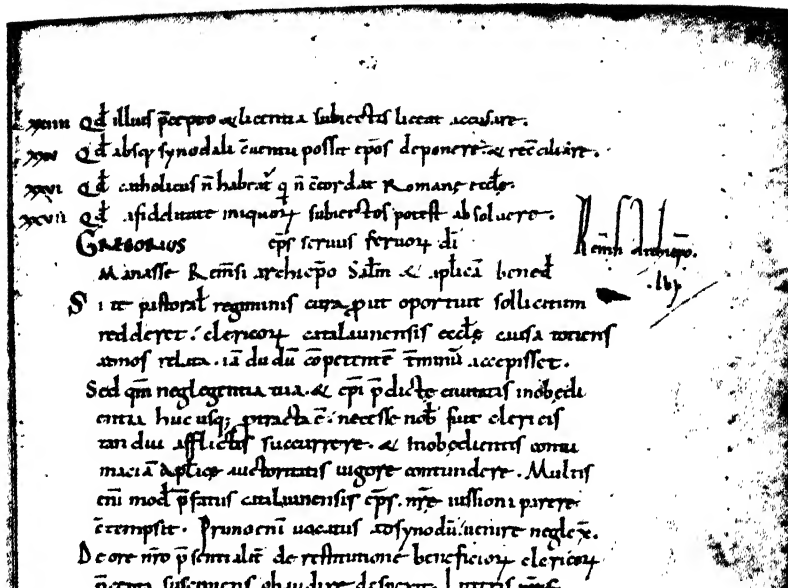 xxiiii Qđ illius p̄cepto & licentia subiectis liceat accusare.
xxv Qđ absq; synodali c̄uentu possit ep̄os deponere. & rec̄ciliare.
xxvi Qđ catholicus n̄ habeat᷑ q n̄ c̄cordat Romanę eccłę.
xxvii Qđ a fidelitate iniquoꝝ subiectos potest absoluere.
GREGORIUS ep̄s seruus seruoꝝ dī
Rem̄si archiep̄o.
Manasse Rem̄si archiep̄o Salt̄m & ap̄licā bened̄
Si te pastoral̄ regiminis cura ꝓut oportuit sollicitum
redderet. clericoꝝ catalaunensis eccłę causa totiens
ad nos relata. iā dudū cōpetentē t̄minū accepisset.
Sed qm̄ neglegentia tua. & ep̄i p̄dictę ciuitatis inobedi
entia huc usq; ꝓtracta ē. necesse nob̄ fuit clericis
tan diu afflictis succurrere. & inobedientis contu
maciā ap̄licę auctoritatis uigore contundere. Multis
eni mod̄ p̄fatus catalaunensis ep̄s. nr̄e iussioni parere
c̄tempsit. Primo eni uocatus ad synodū. uenire neglex̄.
De ore nr̄o p̄sentialit̄ de restitutione beneficioꝝ clericoꝝ
suscipiens obaudire